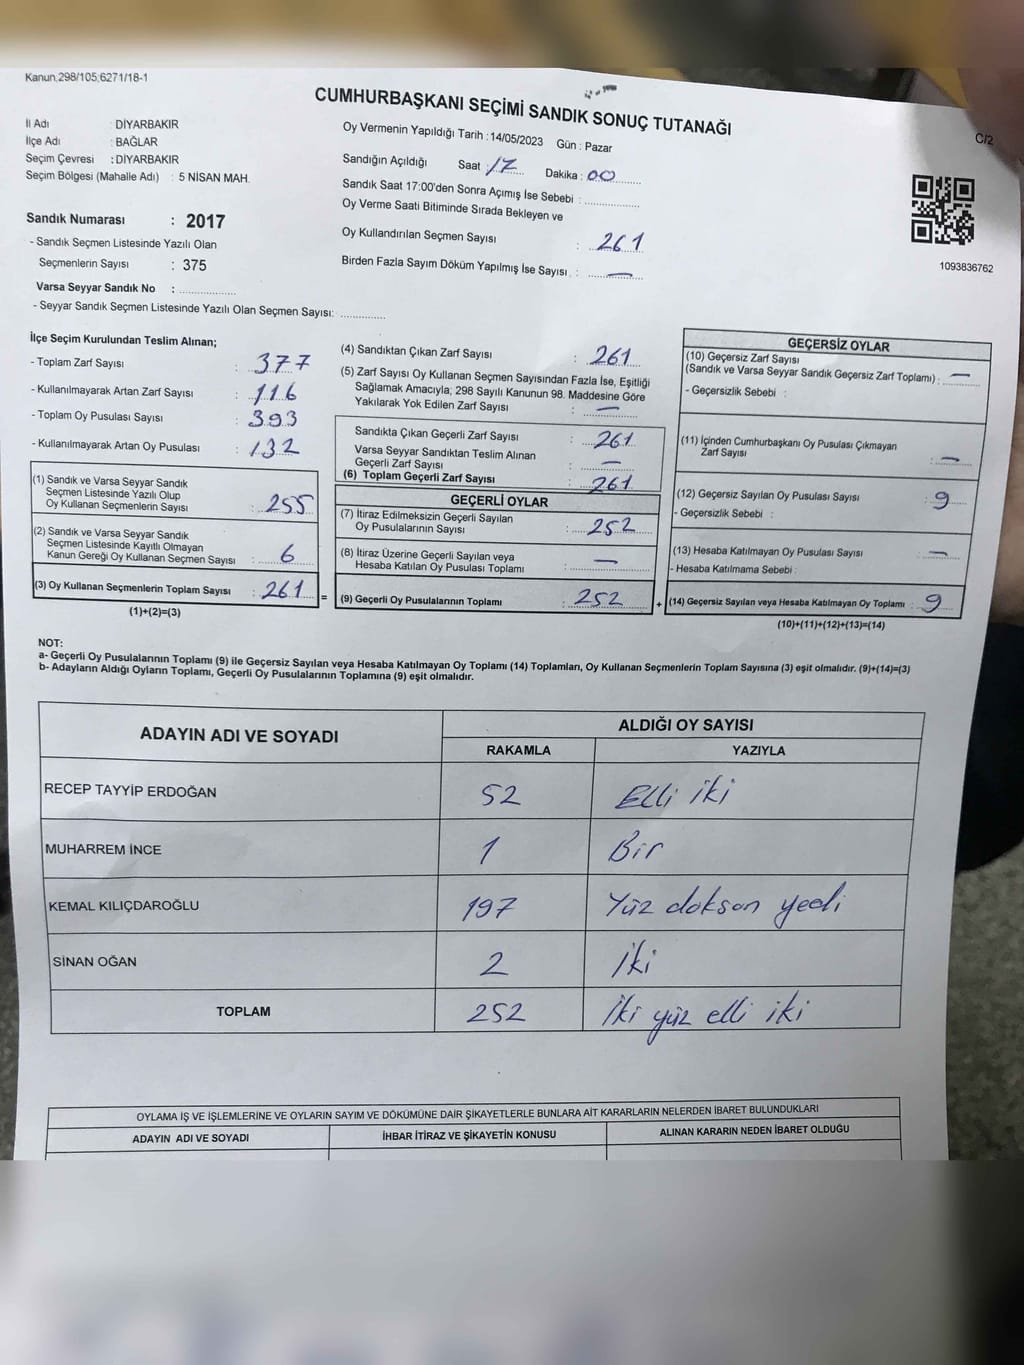 Kanun,298/105,6271/18-1
CUMHURBAŞKANI SEÇİMİ SANDIK SONUÇ TUTANAĞI
C/2
İl Adı : DİYARBAKIR
İlçe Adı : BAĞLAR
Seçim Çevresi : DİYARBAKIR
Seçim Bölgesi (Mahalle Adı) : 5 NİSAN MAH.
Oy Vermenin Yapıldığı Tarih : 14/05/2023 Gün : Pazar
Sandığın Açıldığı Saat : 17 Dakika : 00
Sandık Saat 17:00'den Sonra Açımış İse Sebebi :
Oy Verme Saati Bitiminde Sırada Bekleyen ve
Oy Kullandırılan Seçmen Sayısı : 261
Birden Fazla Sayım Döküm Yapılmış İse Sayısı : —
1093836762
Sandık Numarası : 2017
- Sandık Seçmen Listesinde Yazılı Olan
Seçmenlerin Sayısı : 375
Varsa Seyyar Sandık No :
- Seyyar Sandık Seçmen Listesinde Yazılı Olan Seçmen Sayısı:
İlçe Seçim Kurulundan Teslim Alınan;
- Toplam Zarf Sayısı : 377
- Kullanılmayarak Artan Zarf Sayısı : 116
- Toplam Oy Pusulası Sayısı : 393
- Kullanılmayarak Artan Oy Pusulası : 132
(1) Sandık ve Varsa Seyyar Sandık
Seçmen Listesinde Yazılı Olup
Oy Kullanan Seçmenlerin Sayısı : 255
(2) Sandık ve Varsa Seyyar Sandık
Seçmen Listesinde Kayıtlı Olmayan
Kanun Gereği Oy Kullanan Seçmen Sayısı : 6
(3) Oy Kullanan Seçmenlerin Toplam Sayısı : 261 =
(1)+(2)=(3)
(4) Sandıktan Çıkan Zarf Sayısı : 261
(5) Zarf Sayısı Oy Kullanan Seçmen Sayısından Fazla İse, Eşitliği
Sağlamak Amacıyla; 298 Sayılı Kanunun 98. Maddesine Göre
Yakılarak Yok Edilen Zarf Sayısı : —
Sandıkta Çıkan Geçerli Zarf Sayısı : 261
Varsa Seyyar Sandıktan Teslim Alınan
Geçerli Zarf Sayısı : —
(6) Toplam Geçerli Zarf Sayısı : 261
GEÇERLİ OYLAR
(7) İtiraz Edilmeksizin Geçerli Sayılan
Oy Pusulalarının Sayısı : 252
(8) İtiraz Üzerine Geçerli Sayılan veya
Hesaba Katılan Oy Pusulası Toplamı : —
(9) Geçerli Oy Pusulalarının Toplamı : 252 +
GEÇERSİZ OYLAR
(10) Geçersiz Zarf Sayısı
(Sandık ve Varsa Seyyar Sandık Geçersiz Zarf Toplamı) : —
- Geçersizlik Sebebi :
(11) İçinden Cumhurbaşkanı Oy Pusulası Çıkmayan
Zarf Sayısı : —
(12) Geçersiz Sayılan Oy Pusulası Sayısı : 9
- Geçersizlik Sebebi :
(13) Hesaba Katılmayan Oy Pusulası Sayısı : —
- Hesaba Katılmama Sebebi :
(14) Geçersiz Sayılan veya Hesaba Katılmayan Oy Toplamı : 9
(10)+(11)+(12)+(13)=(14)
NOT:
a- Geçerli Oy Pusulalarının Toplamı (9) ile Geçersiz Sayılan veya Hesaba Katılmayan Oy Toplamı (14) Toplamları, Oy Kullanan Seçmenlerin Toplam Sayısına (3) eşit olmalıdır. (9)+(14)=(3)
b- Adayların Aldığı Oyların Toplamı, Geçerli Oy Pusulalarının Toplamına (9) eşit olmalıdır.
ADAYIN ADI VE SOYADI ALDIĞI OY SAYISI
RAKAMLA YAZIYLA
RECEP TAYYİP ERDOĞAN 52 Elli iki
MUHARREM İNCE 1 Bir
KEMAL KILIÇDAROĞLU 197 Yüz doksan yedi
SİNAN OĞAN 2 İki
TOPLAM 252 İki yüz elli iki
OYLAMA İŞ VE İŞLEMLERİNE VE OYLARIN SAYIM VE DÖKÜMÜNE DAİR ŞİKAYETLERLE BUNLARA AİT KARARLARIN NELERDEN İBARET BULUNDUKLARI
ADAYIN ADI VE SOYADI İHBAR İTİRAZ VE ŞİKAYETİN KONUSU ALINAN KARARIN NEDEN İBARET OLDUĞU